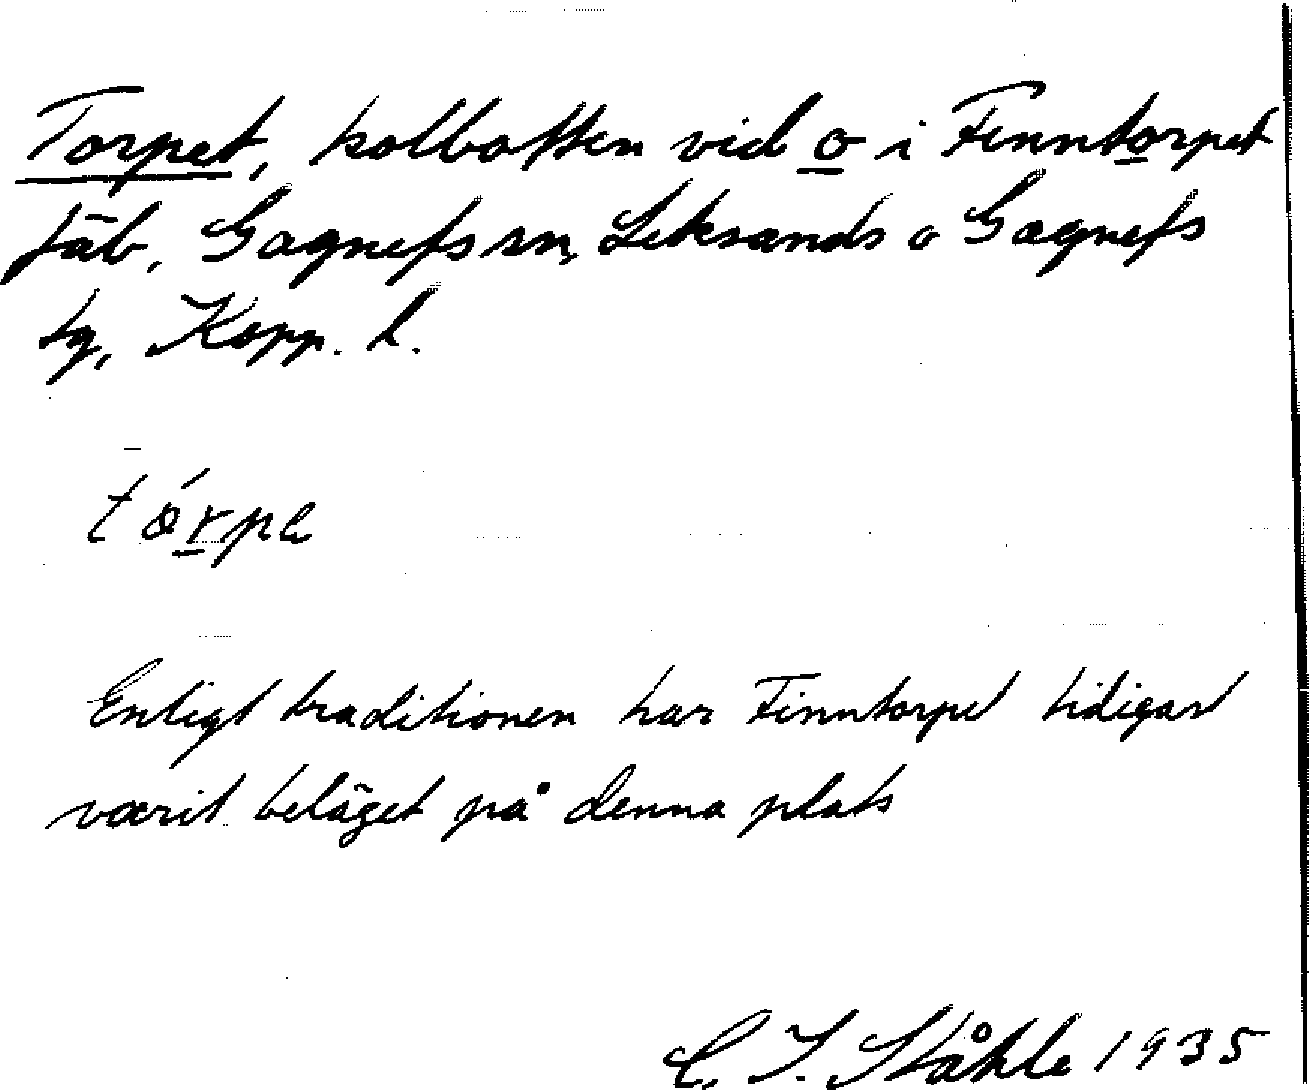 Torpet, kolbotten vid o i Finntorpet
fäb, Gagnefs sn, Leksands o Gagnefs
tg, Kopp. l.
tórpe
Enligt traditionen har Finntorpet tidigare
varit beläget på denna plats
C. I. Ståhle 1935